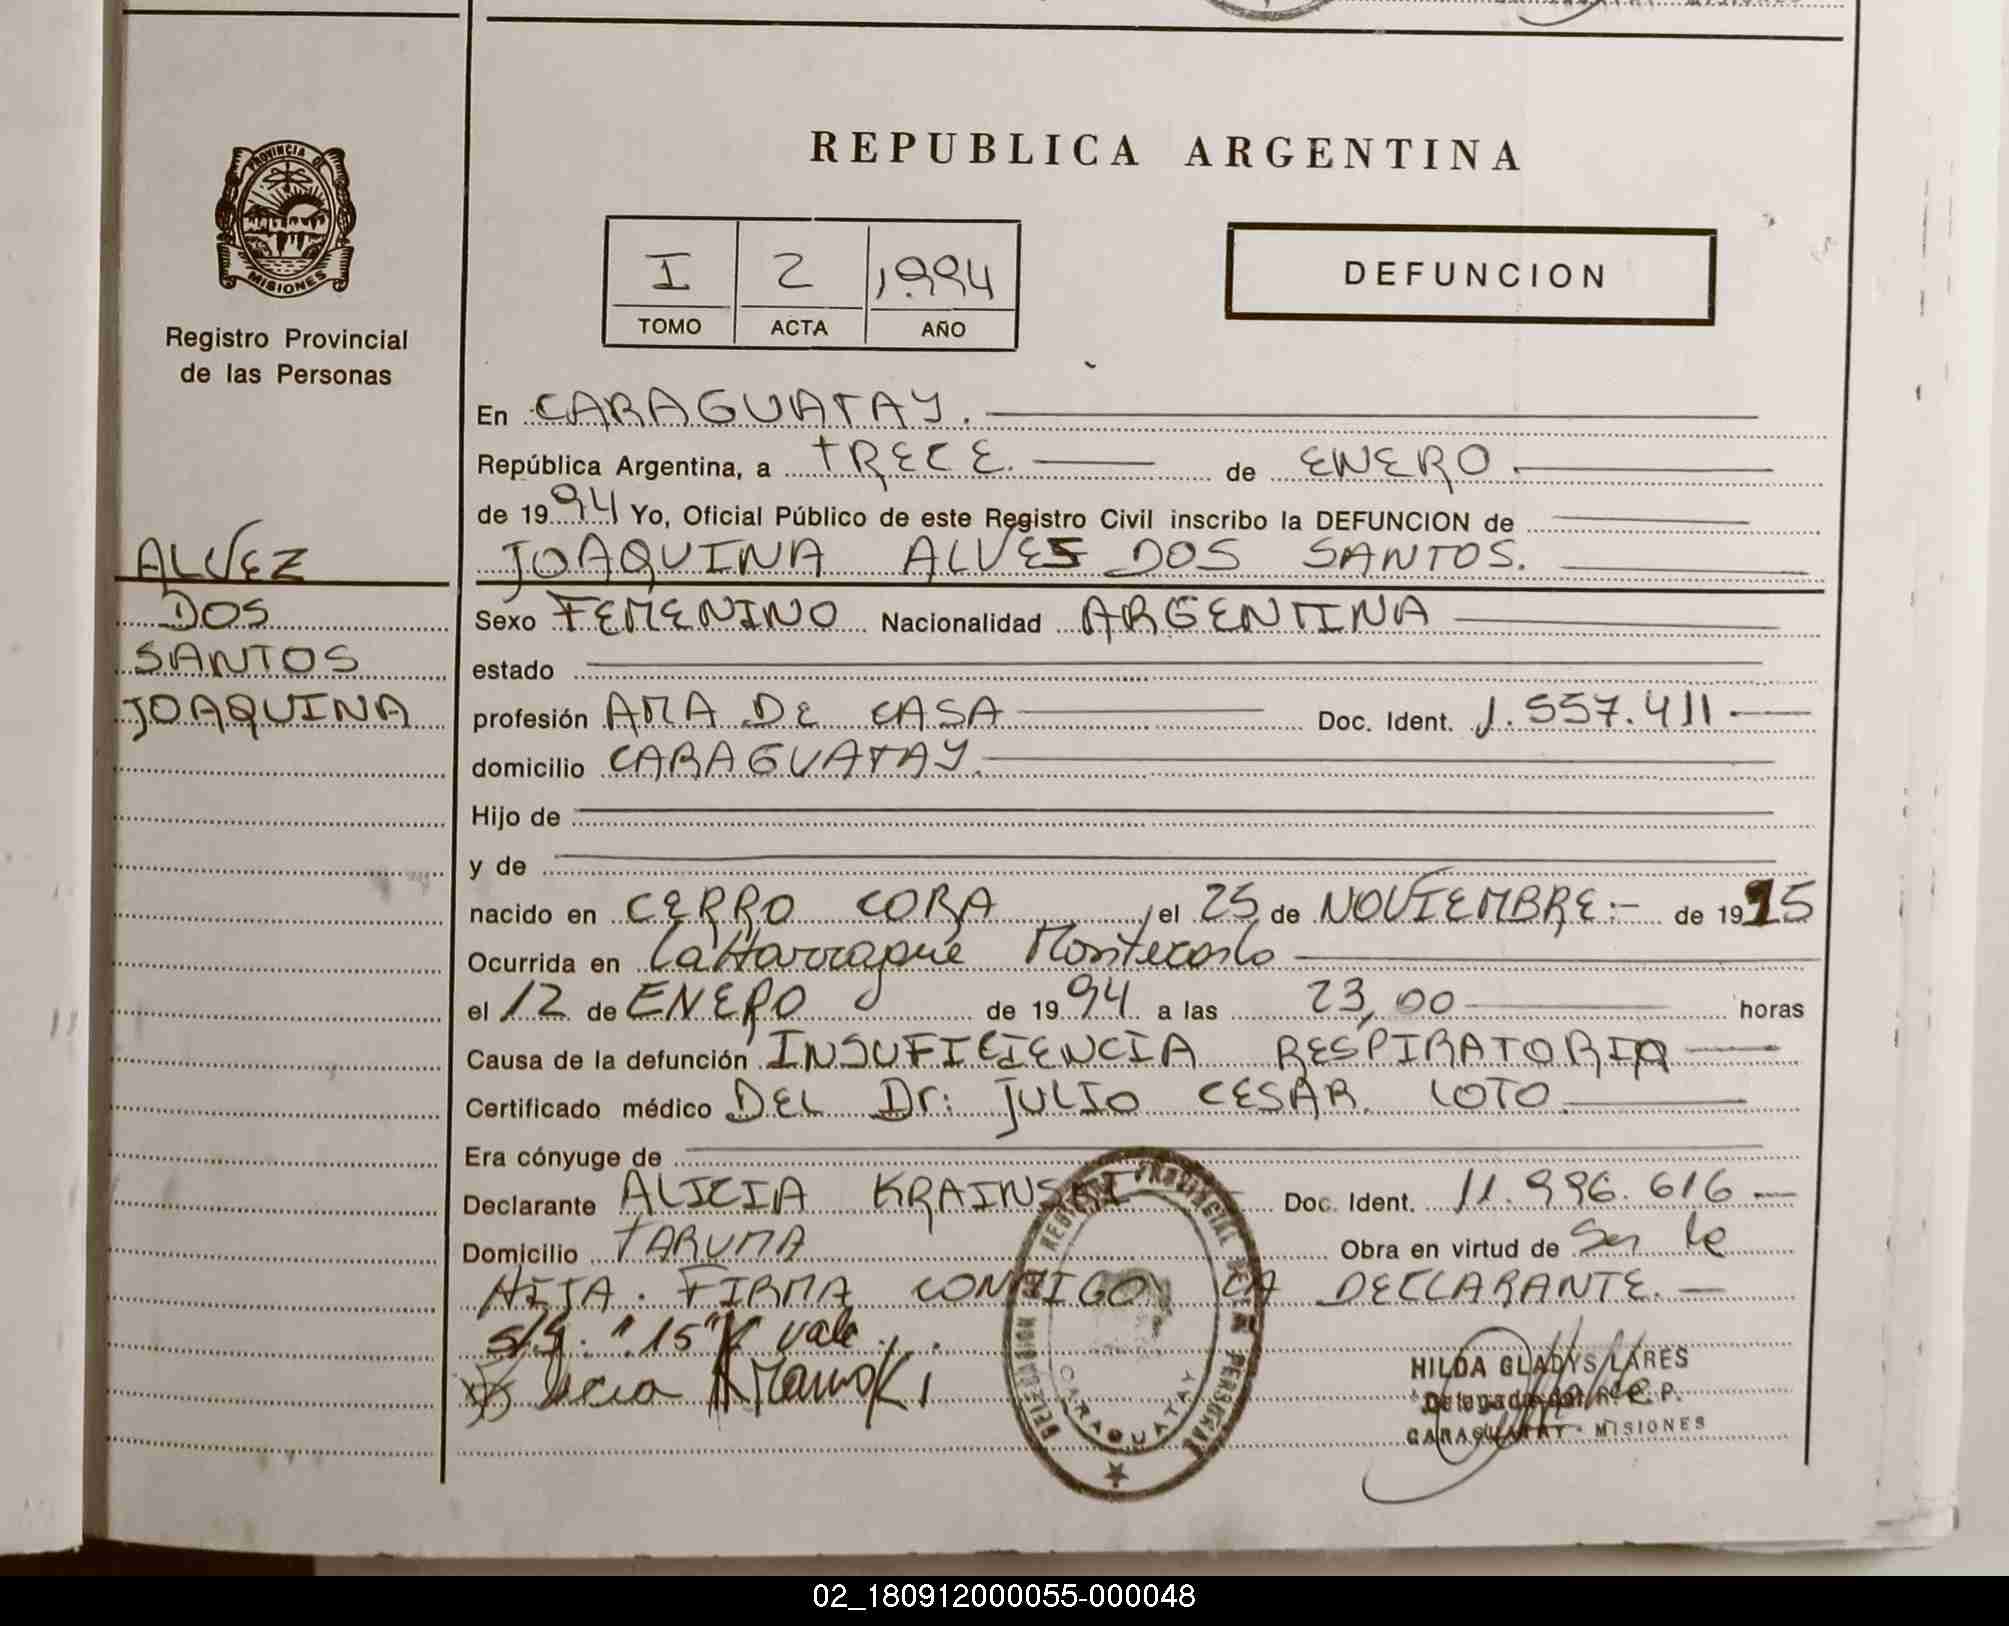 REPUBLICA ARGENTINA
PROVINCIA DE
MISIONES
Registro Provincial
de las Personas
I 2 1.994
TOMO ACTA AÑO
DEFUNCION
En CARAGUATAY.
República Argentina, a TRECE. de ENERO.
de 1994 Yo, Oficial Público de este Registro Civil inscribo la DEFUNCION de
JOAQUINA ALVES DOS SANTOS.
ALVEZ
DOS
SANTOS
JOAQUINA
Sexo FEMENINO Nacionalidad ARGENTINA
estado
profesión AMA DE CASA Doc. Ident. 1.557.411
domicilio CARAGUATAY.
Hijo de
y de
nacido en CERRO CORA, el 25 de NOVIEMBRE:- de 1915
Ocurrida en Laharrague Montecarlo
el 12 de ENERO de 1994 a las 23,00 horas
Causa de la defunción INSUFICIENCIA RESPIRATORIA
Certificado médico DEL Dr: JULIO CESAR LOTO
Era cónyuge de
Declarante ALICIA KRAINSKI Doc. Ident. 11.996.616
Domicilio TARUMA Obra en virtud de Ser la
HIJA. FIRMA CONMIGO LA DECLARANTE.
s/g. "15" vale
DELEGACION REGISTRO PROVINCIAL DE LAS PERSONAS
CARAGUATAY
HILDA GLADYS LARES
Delegada del R. P. P.
CARAGUATAY - MISIONES
02_180912000055-000048